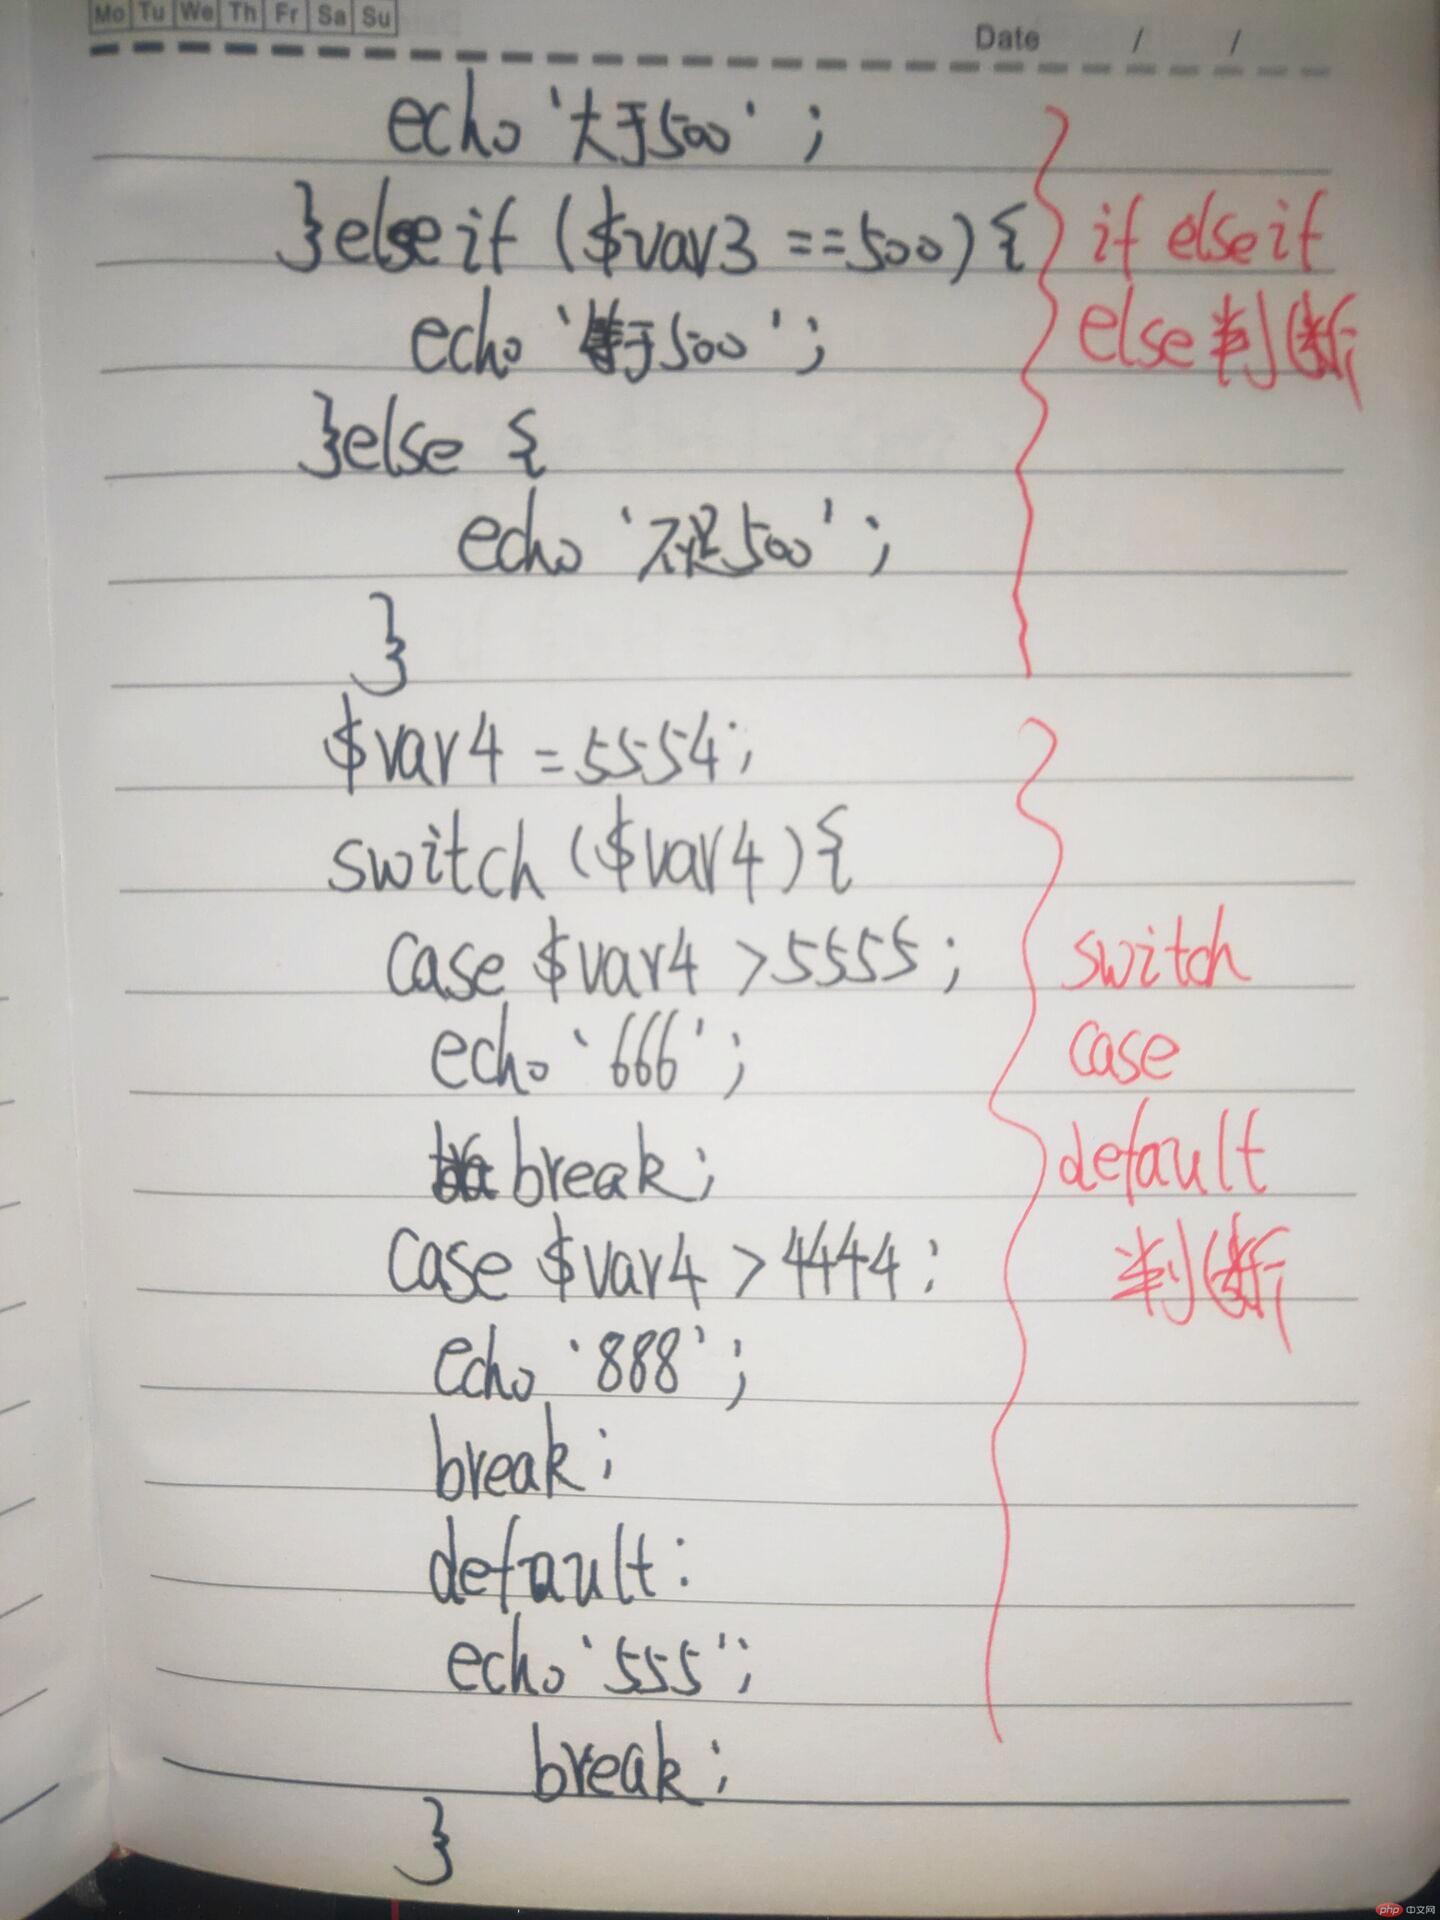 Mo Tu We Th Fr Sa Su
Date / /
echo '大于500';
}elseif ($var3 ==500){
echo '等于500';
}else {
echo '不是500';
}
if elseif
else判断
$var4 =5554;
switch ($var4){
case $var4 >5555;
echo '666';
break;
case $var4 >4444:
echo '888';
break;
default:
echo '555';
break;
}
switch
case
default
判断
php 中文网